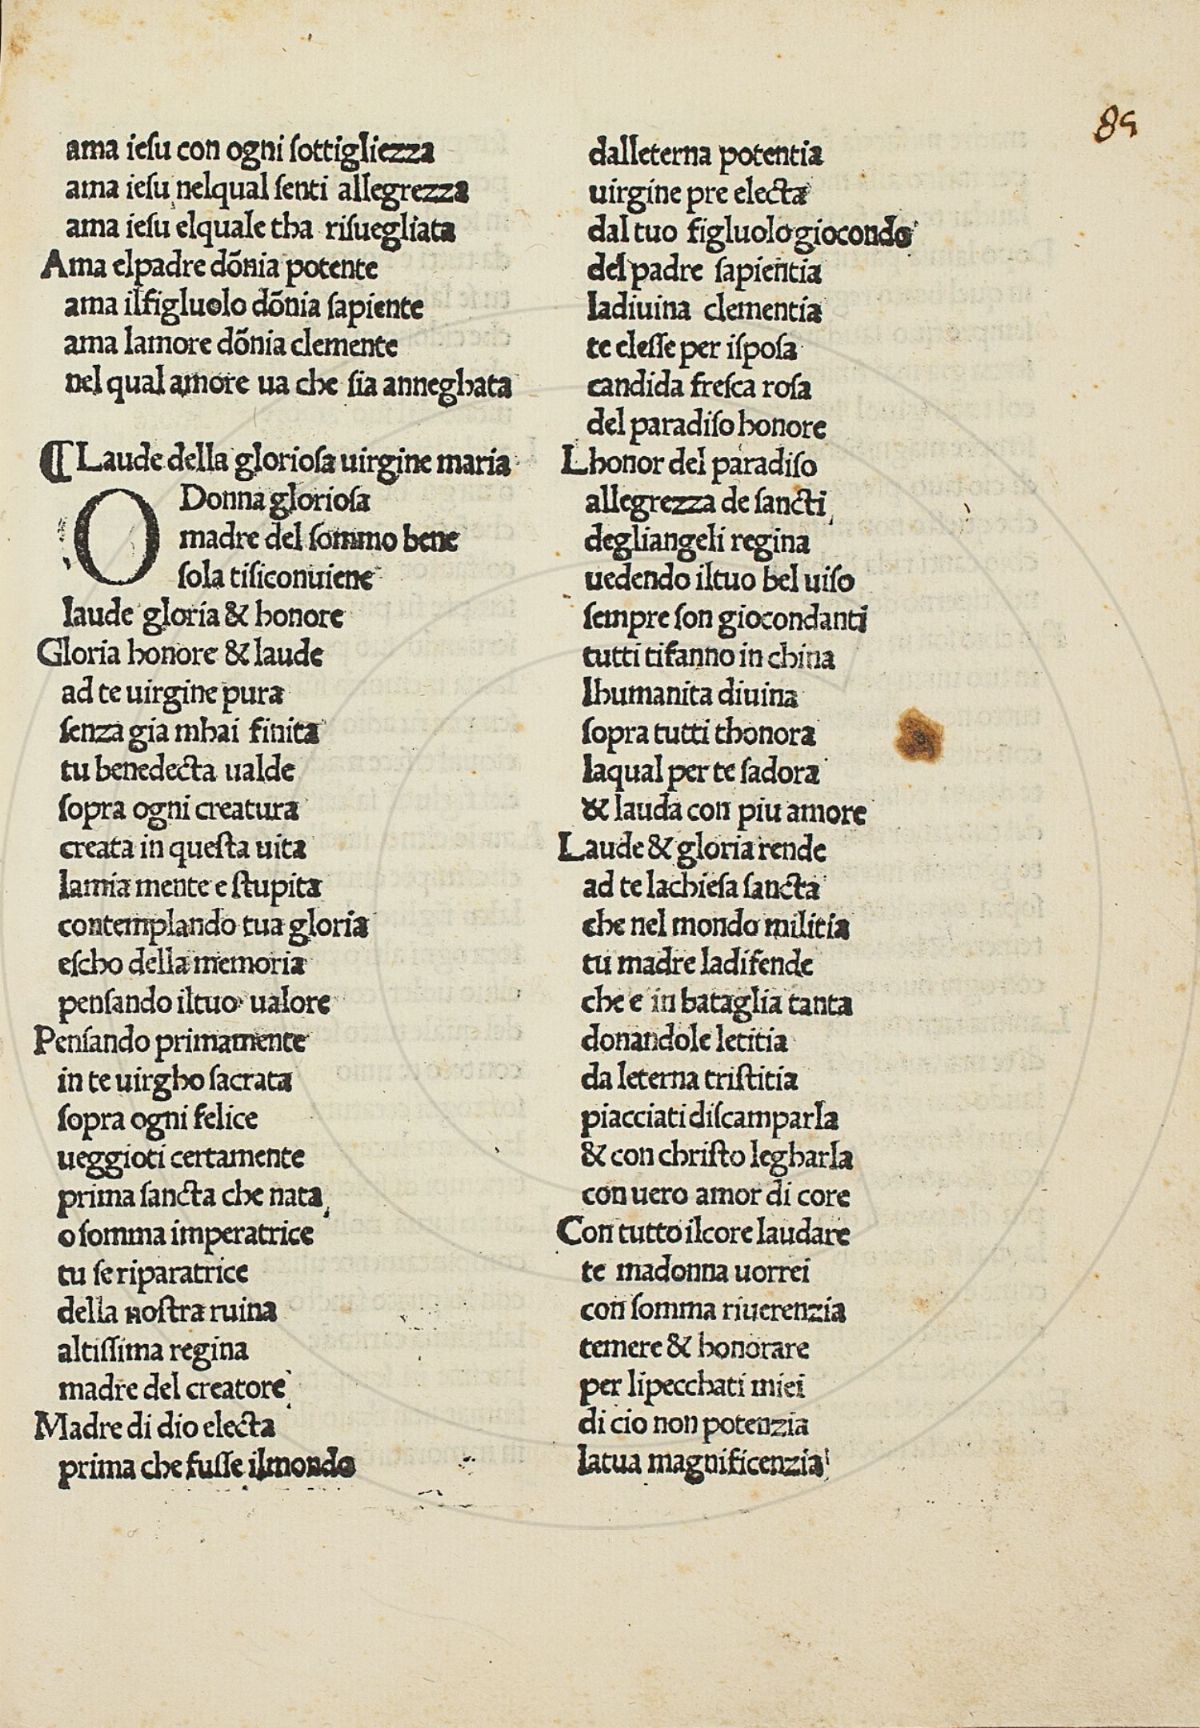 89
ama iesu con ogni sottigliezza
ama iesu nelqual senti allegrezza
ama iesu elquale tha risuegliata
Ama elpadre dõnia potente
ama ilfigluolo dõnia sapiente
ama lamore dõnia clemente
nel qual amore ua che sia anneghata
¶ Laude della gloriosa uirgine maria
O Donna gloriosa
madre del sommo bene
sola tisiconuiene
laude gloria & honore
Gloria honore & laude
ad te uirgine pura
senza gia mhai finita
tu benedecta ualde
sopra ogni creatura
creata in questa uita
lamia mente e stupita
contemplando tua gloria
escho della memoria
pensando iltuo ualore
Pensando primamente
in te uirgho sacrata
sopra ogni felice
ueggioti certamente
prima sancta che nata
o somma imperatrice
tu se riparatrice
della nostra ruina
altissima regina
madre del creatore
Madre di dio electa
prima che fusse ilmondo
dalleterna potentia
uirgine pre electa
dal tuo figluolo giocondo
del padre sapientia
ladiuina clementia
te elesse per isposa
candida fresca rosa
del paradiso honore
Lhonor del paradiso
allegrezza de sancti
degliangeli regina
uedendo iltuo bel uiso
sempre son giocondanti
tutti tifanno in china
lhumanita diuina
sopra tutti thonora
laqual per te sadora
& lauda con piu amore
Laude & gloria rende
ad te lachiesa sancta
che nel mondo militia
tu madre ladifende
che e in bataglia tanta
donandole letitia
da leterna tristitia
piacciati discamparla
& con christo legharla
con uero amor di core
Con tutto ilcore laudare
te madonna uorrei
con somma riuerenzia
temere & honorare
per lipecchati miei
di cio non potenzia
latua magnificenzia